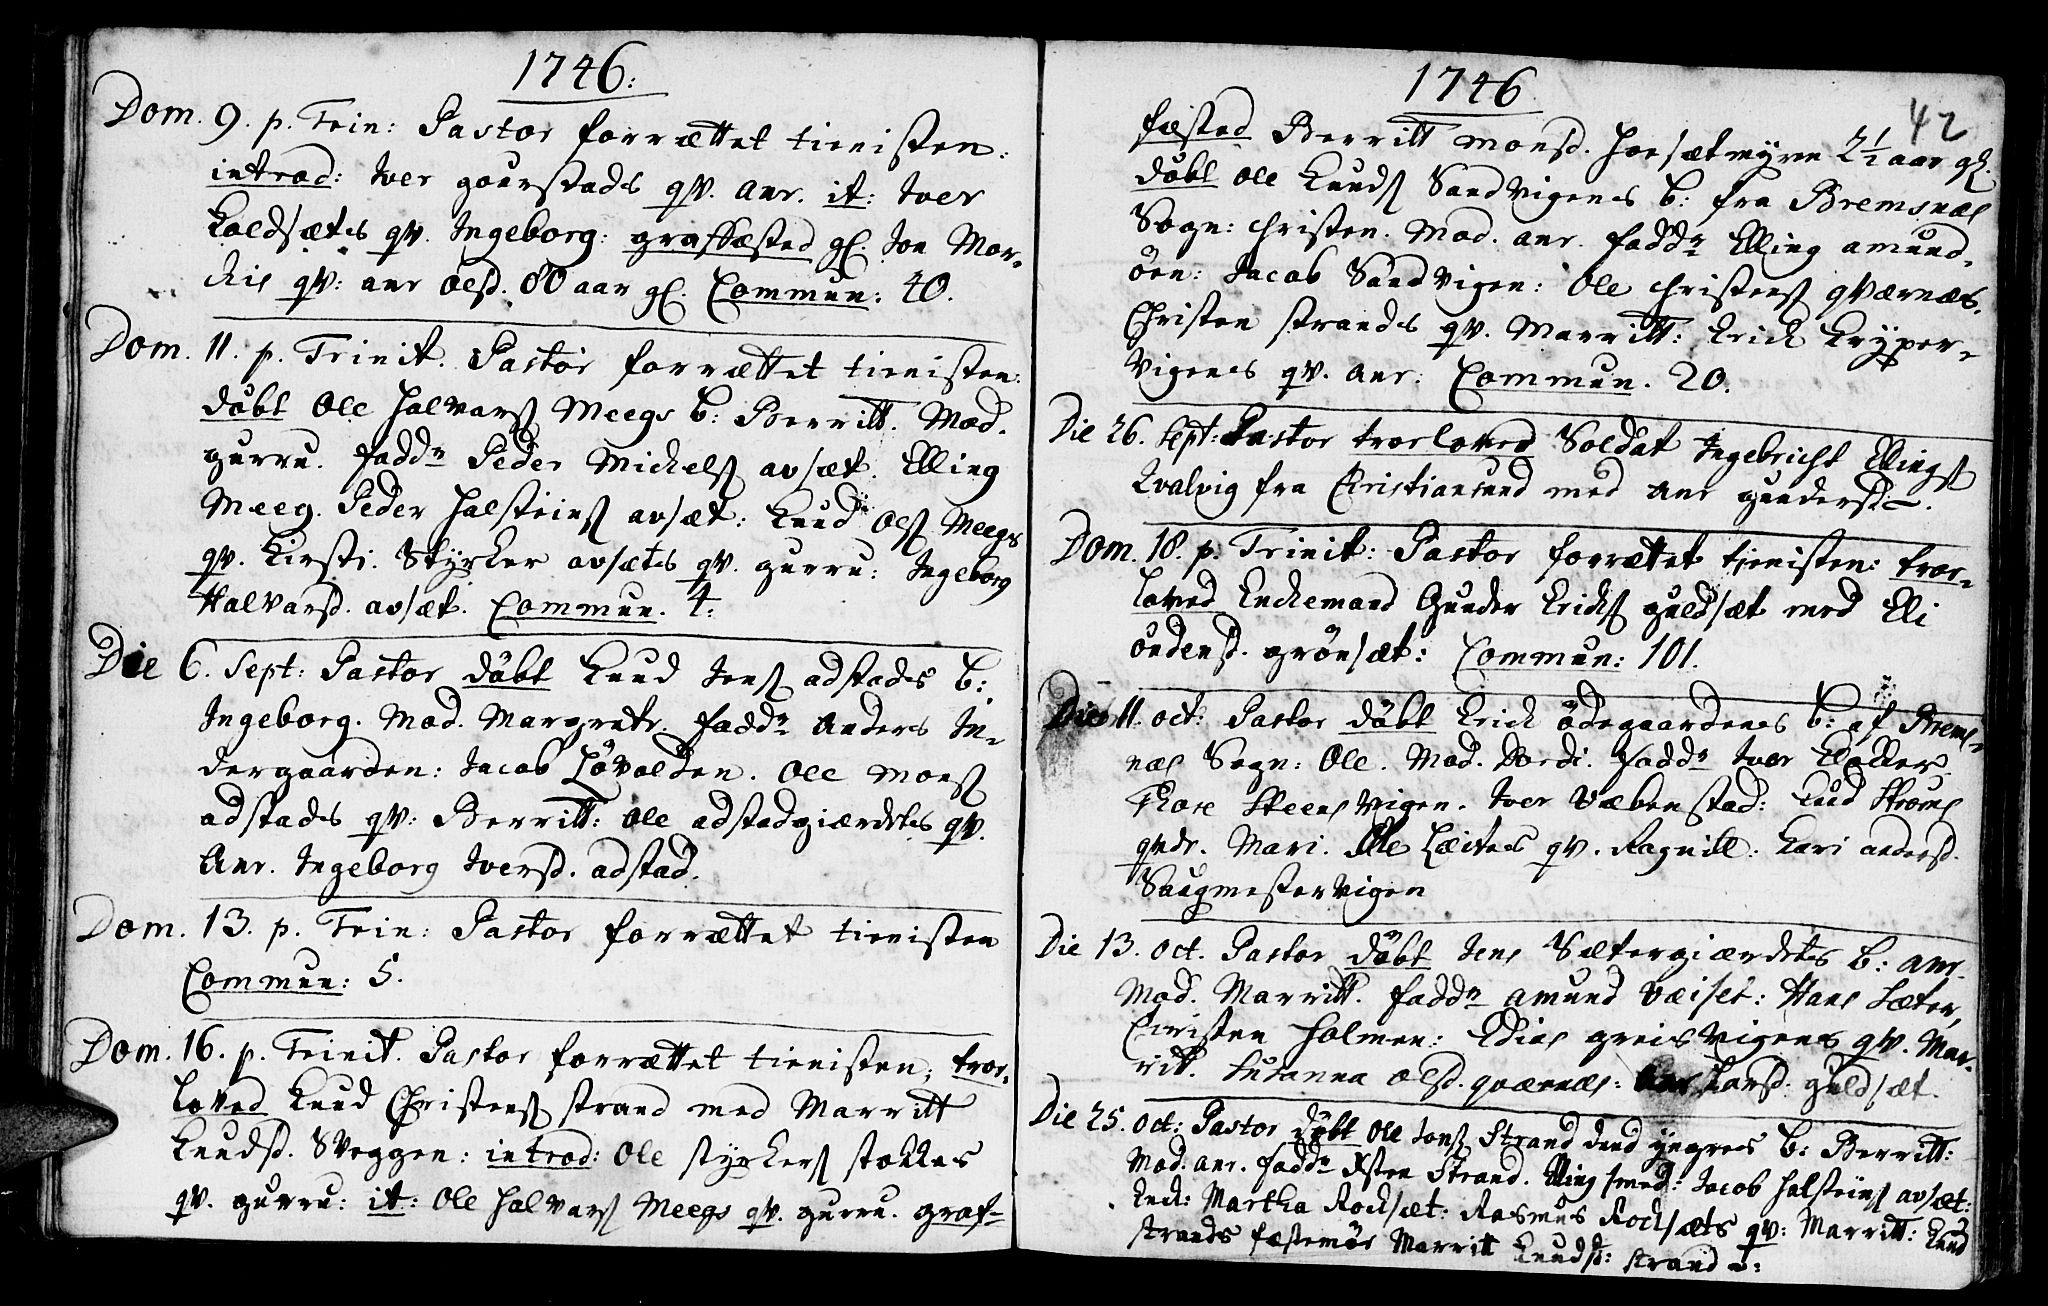 1746:
Dom. 9. p. Trin: Pastor forrættet tienisten:
introd: Iver gourstads qv. anr. it: Iver
Koldsætes qv. Ingeborg: graffæsted gl. Jon Mor-
chis qv: anr olsd. 80 aar gl. Commun: 40.
Dom. 11. p. Trinit. Pastor forrættet tienisten:
döbt Ole Halvars Meegs b: Berritt. Mod.
gurru. fadd Peder Michels avsæt. Elling
Meeg. Peder Halsteins avsæt: Knud Ols Meegs
qv. Kirsti. Styrker avsætes qv. gurru: Ingeborg
Halvarsd. avsæt. Commun. 4:
Die 6. Sept: Pastor döbt Knud Jens adstads b:
Ingeborg. Mod. Margrete. fadd Anders In-
dergaarden: Jacob Lövolden. Ole Mons
adstads qv: Berritt: Ole adstadgiærdetes qv.
Anr. Ingeborg Iversd. adstad.
Dom. 13. p. Trin: Pastor forrættet tienisten
Commun: 5.
Dom. 16. p. Trinit. Pastor forrættet tienisten, troe-
loved Knud Christens strand med Marritt
Knudsd. Sveggen: introd: Ole styrkers stokkes
qv. gurru: it: Ole Halvars Meegs qv. gurru. graf-
1746
42
fæsted Berritt Monsd. Hoesætmyren 2 1/2 aar gl.
döbt Ole Knuds Sandvigenes b: fra Bremsnæs
Sogn: Christen. Mod. anr. fadd Elling amund-
öen: Jacob Sandvigen: Ole Christens qværnæs.
Christen strands qv. Marritt: Erich Kryper-
vigenes qv. anr: Commun. 20.
Die 26. Sept: Pastor troeloved Soldat Ingebricht Ellings
Kvalvig fra Christiansund med anr gundersd.
Dom. 18. p. Trinit: Pastor forrættet tienisten: troe-
loved Enchemand Gunder Erichs guldsæt med Eli
öudensd. grönsæt: Commun: 101.
Die 11. oct: Pastor döbt Erich ödegaardenes b: af Brems-
næs Sogn: Ole. Mod. Dordi. fadd Iver Klocker
Thore Steensvigen. Iver Væbenstad: Knud Ströms
qvdr. Mari. Ole Læites qv. Ragnill: Kari andersd.
Saugmestervigen
Die 13. oct. Pastor döbt Jens Sætergiærdetes b: anr.
Mod. Marritt. fadd amund Væiset: Hans Sæter,
Christen Holmen: Edias greisvigenes qv. Mar-
ritt. Susanna olsd. qværnæs: Larsd. guldsæt.
Die 25. oct: Pastor döbt Ole Jons Strand dend yngres b: Berritt:
Mod. anr. fadd Strand. Elling smed: Jacob Halsteins avsæt:
Martha Rochsæt: Rasmus Rochsæts qv: Marritt: Knud
strands fæstemöe Marritt Knudsd: strand